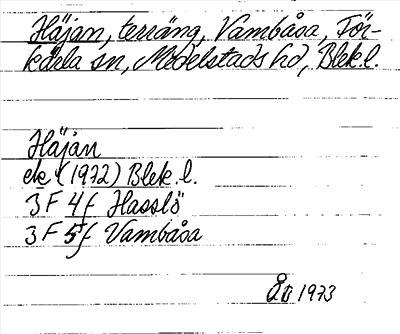 Häjan, terräng, Vambåsa, För-
kärla sn, Medelstads hd, Blek.l.
Häjan
ek (1972) Blek.l.
3 F 4 f Hasslö
3 F 5 f Vambåsa
1973